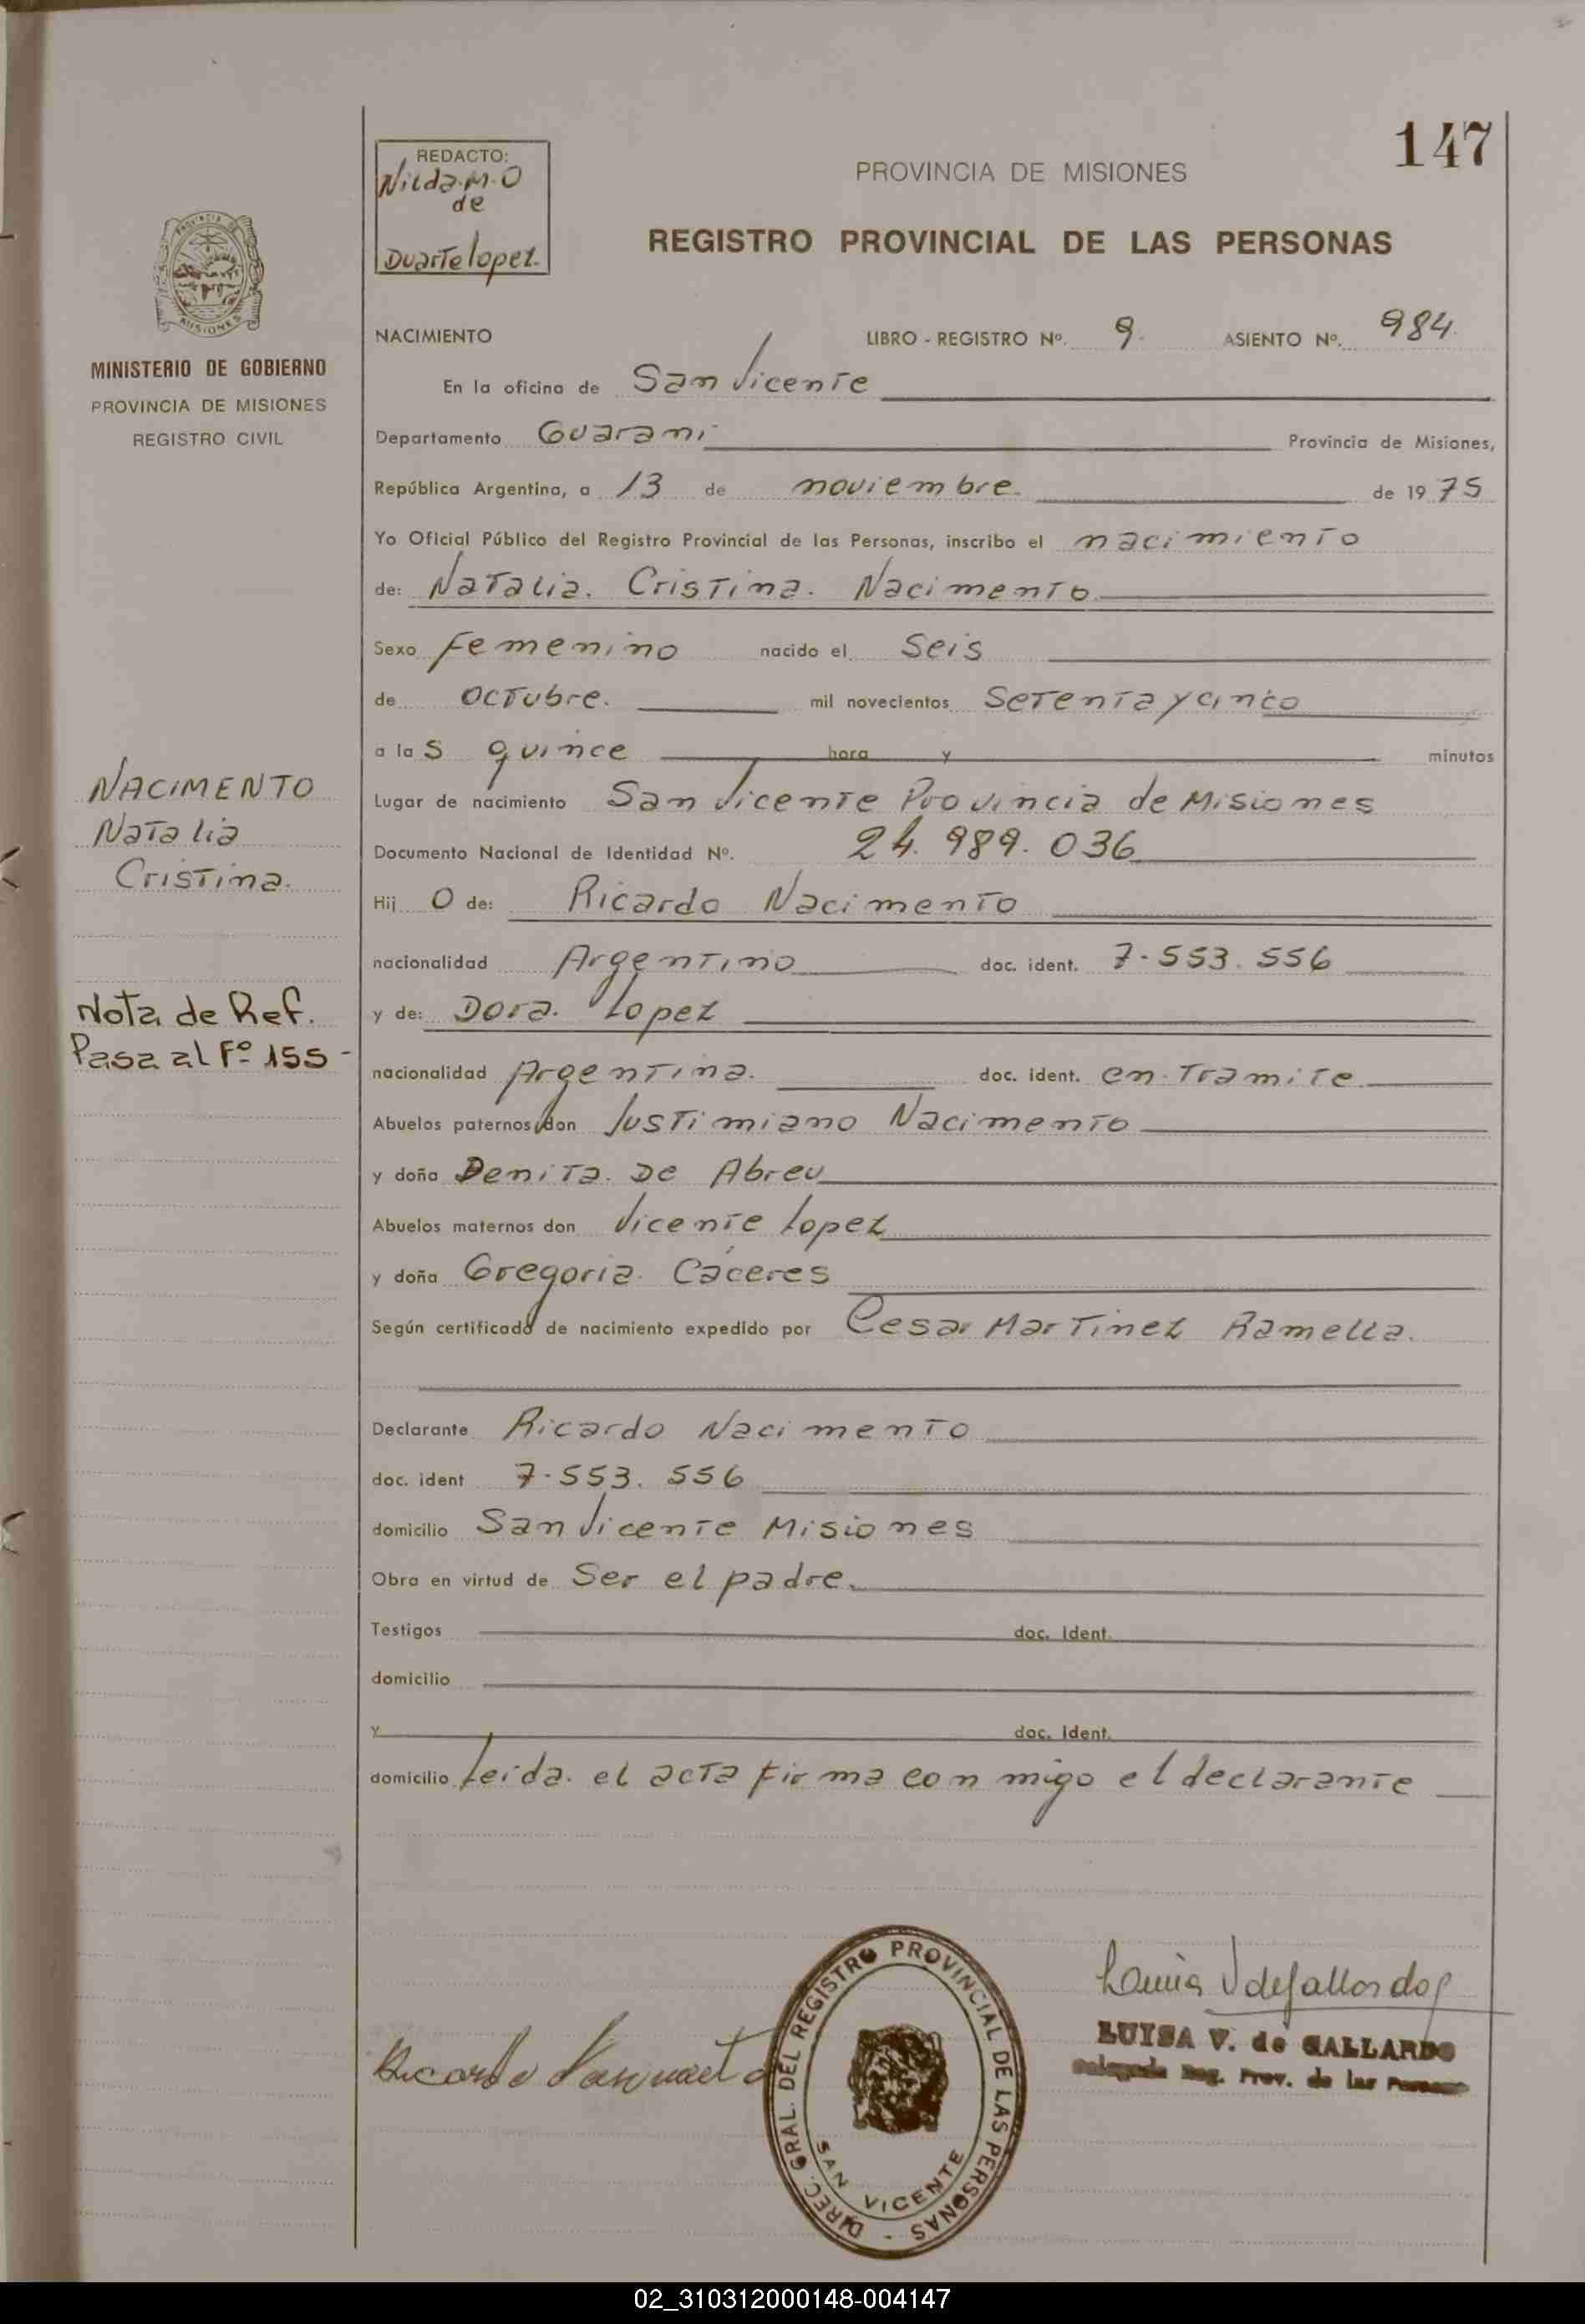 147
REDACTO:
Nilda.M.O
de
Duarte lopez.
PROVINCIA DE MISIONES
REGISTRO PROVINCIAL DE LAS PERSONAS
MISIONES
MINISTERIO DE GOBIERNO
PROVINCIA DE MISIONES
REGISTRO CIVIL
NACIMIENTO LIBRO - REGISTRO Nº. 9. ASIENTO Nº. 984.
En la oficina de San Vicente
Departamento Guarani Provincia de Misiones,
República Argentina, a 13 de noviembre. de 1975
Yo Oficial Público del Registro Provincial de las Personas, inscribo el nacimiento
de: Natalia. Cristina. Nacimento
Sexo Femenino nacido el Seis
de octubre. mil novecientos Setenta y cinco
a las quince hora y minutos
Lugar de nacimiento San Vicente Provincia de Misiones
Documento Nacional de Identidad Nº. 24.989.036
Hijo de: Ricardo Nacimento
nacionalidad Argentino doc. ident. 7.553.556
y de: Dora. Lopez
nacionalidad Argentina. doc. ident. en tramite
Abuelos paternos don Justimiano Nacimento
y doña Denita. De Abreu
Abuelos maternos don Vicente Lopez
y doña Gregoria Cáceres
Según certificado de nacimiento expedido por Cesar Martinez Ramella.
Declarante Ricardo Nacimento
doc. ident 7.553.556
domicilio San Vicente Misiones
Obra en virtud de Ser el padre.
Testigos doc. Ident.
domicilio
y doc. Ident.
domicilio Leida. el acta firma con migo el declarante
NACIMENTO
Natalia
Cristina.
Nota de Ref.
Pasa al Fº 155-
DIREC. GRAL. DEL REGISTRO PROVINCIAL DE LAS PERSONAS -
SAN VICENTE
Luisa V de Gallardo
LUISA V. de GALLARDO
Delegada Reg. Prov. de las Personas
02_310312000148-004147